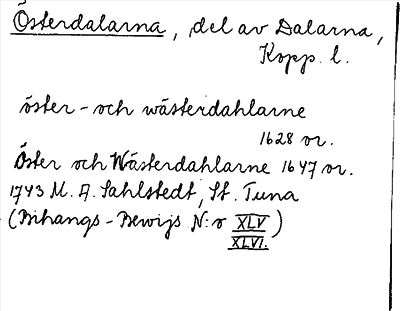 Österdalarna, del av Dalarna,
Kopp. l.
öster-och wästerdahlarne
1628 or.
Öster och Wästerdahlarne 1647 or.
1743 M. A. Sahlstedt, St. Tuna
(Bihangs-Bewijs N:o XLV
XLVI.)